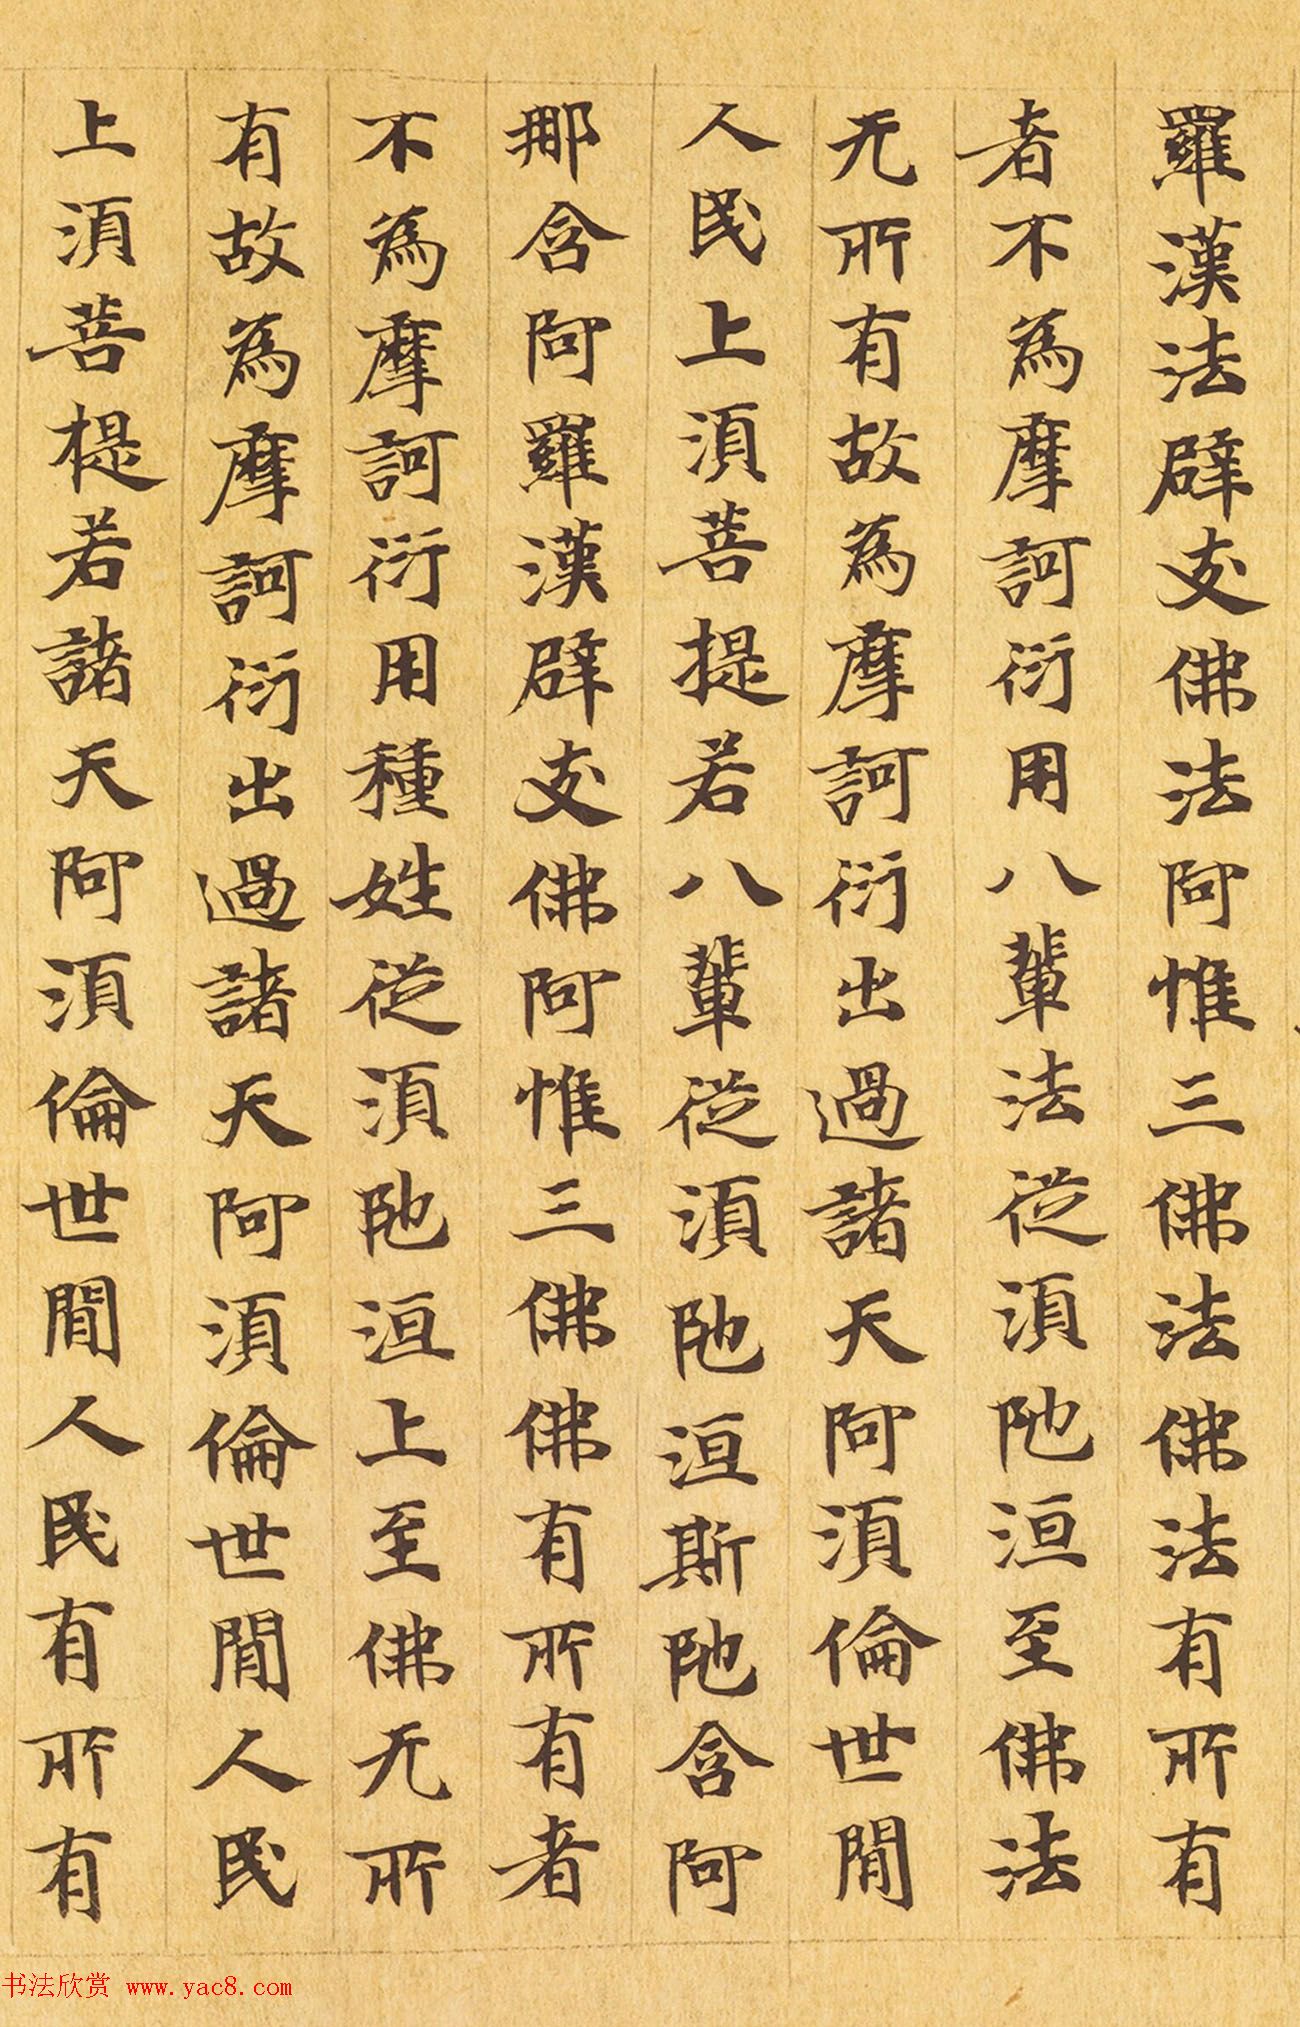 羅漢法辟支佛法阿惟三佛法佛法有所有
者不為摩訶衍用八輩法從須陁洹至佛法
无所有故為摩訶衍出過諸天阿須倫世閒
人民上須菩提若八輩從須陁洹斯陁含阿
那含阿羅漢辟支佛阿惟三佛佛有所有者
不為摩訶衍用種姓從須陁洹上至佛无所
有故為摩訶衍出過諸天阿須倫世閒人民
上須菩提若諸天阿須倫世閒人民有所有
书法欣赏 www.yac8.com